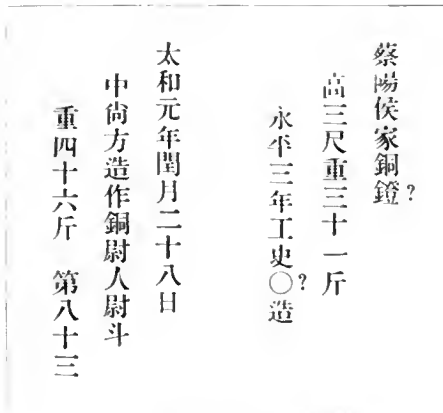 蔡陽侯家銅鐙?
高三尺重三十一斤
永平三年工史○?造
太和元年閏月二十八日
中尙方造作銅尉人尉斗
重四十六斤 第八十三